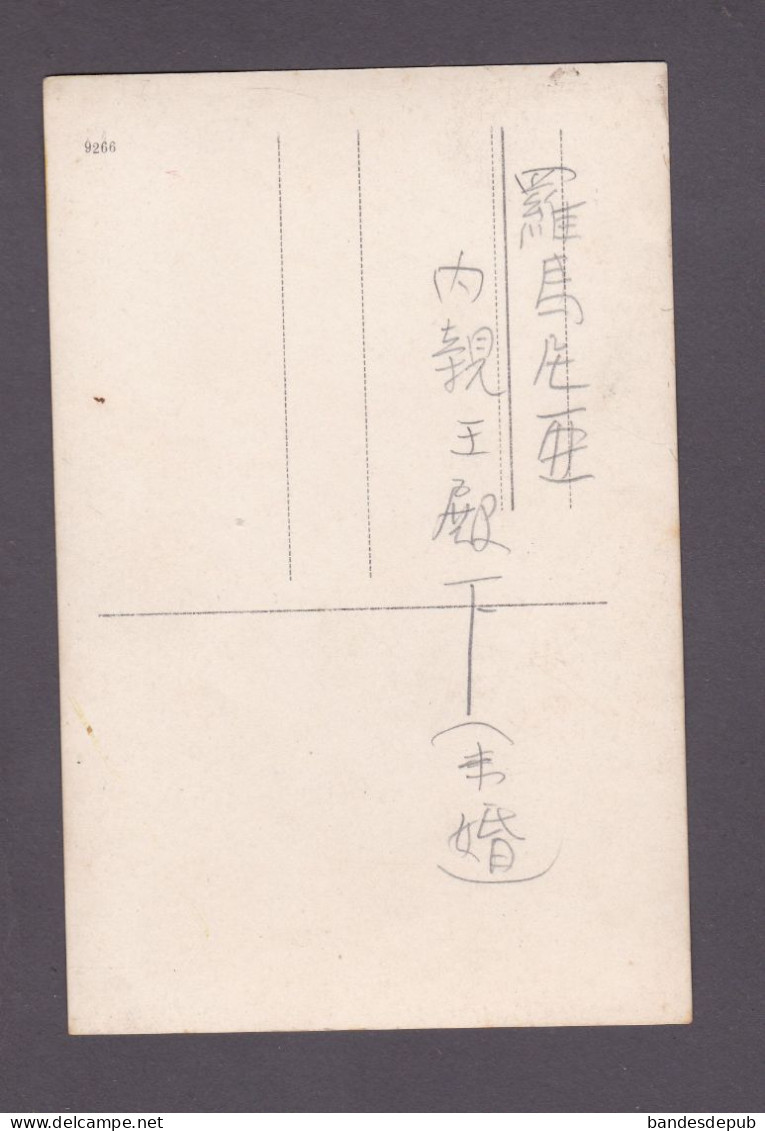 9266
羅馬尼亜
内親王殿下(未婚)
delcampe.net
bandesdepub